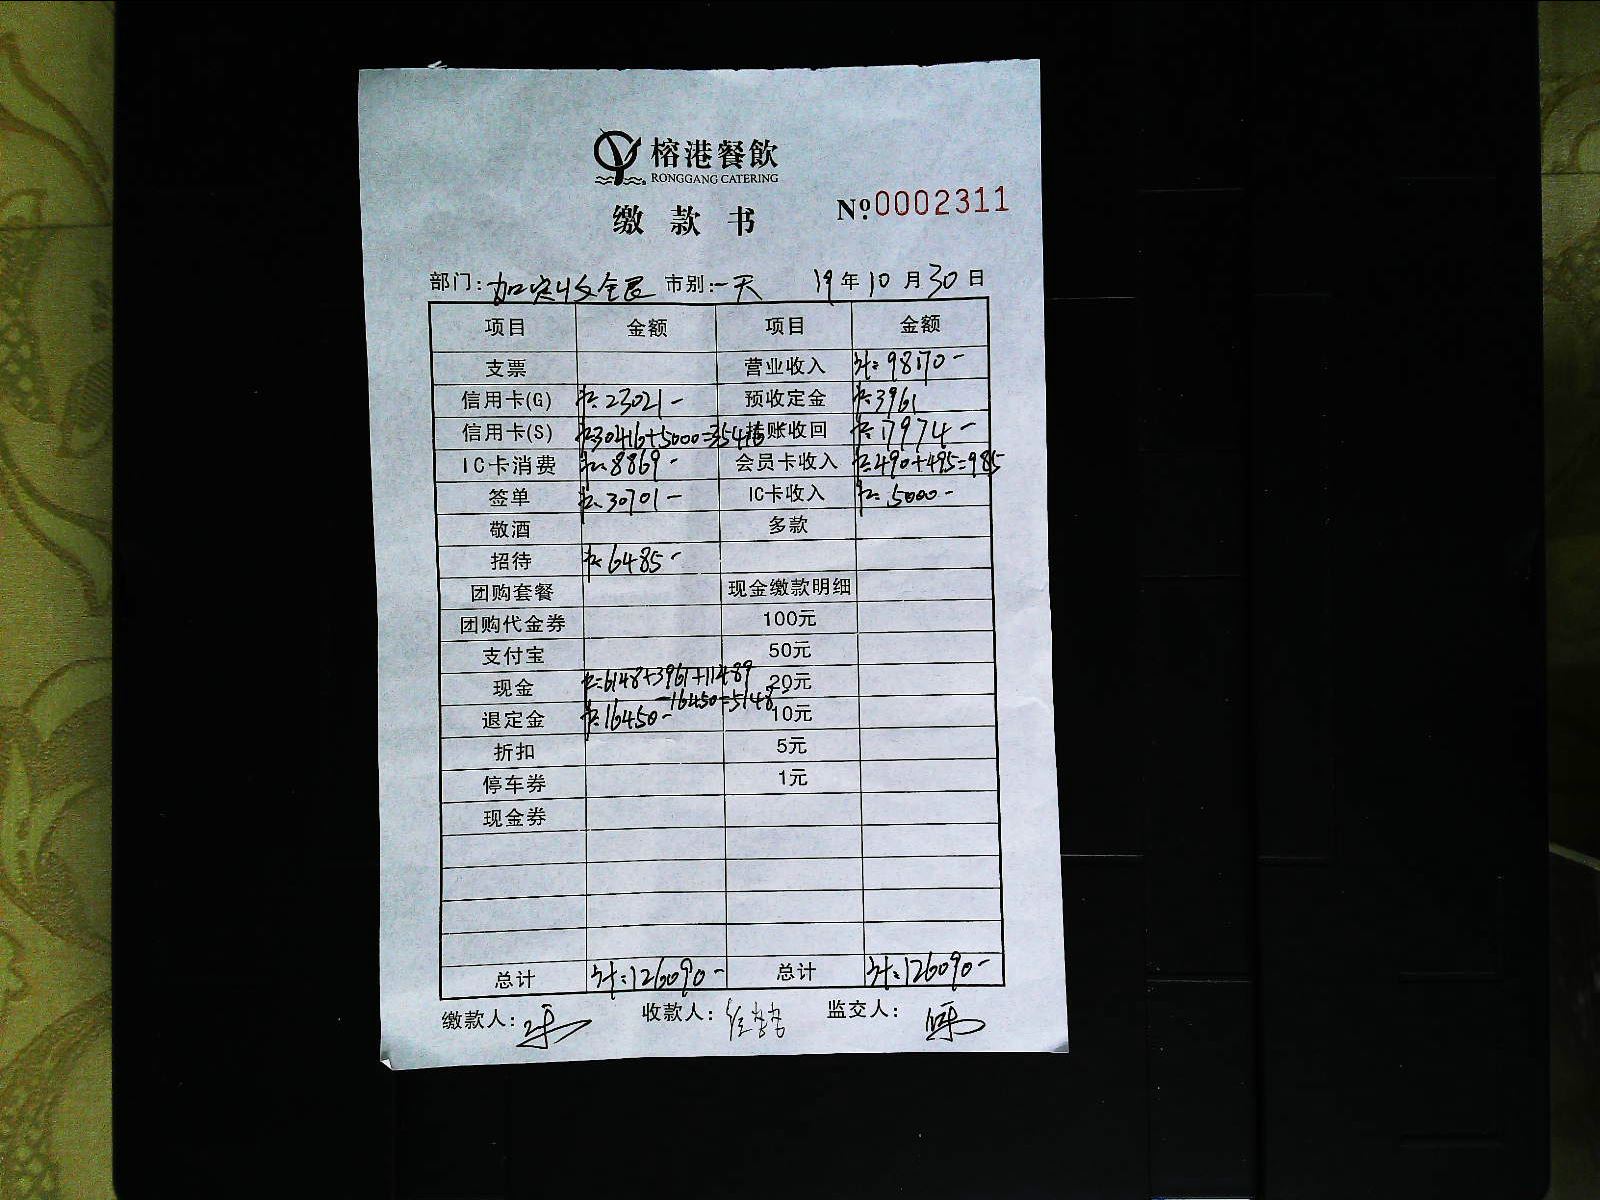 榕港餐飲
RONGGANG CATERING
缴款书
№:0002311
部门: 市别:一天 19年10月30日
项目 金额 项目 金额
支票 营业收入 计:98170-
信用卡(G) 23021- 预收定金 3961
信用卡(S) 30416+5000=35416 挂账收回 17974-
IC卡消费 8869- 会员卡收入 490+495=985
签单 30701- IC卡收入 5000-
敬酒 多款
招待 6485-
团购套餐 现金缴款明细
团购代金券 100元
支付宝 50元
现金 6148+3961+11489 20元
-16450=5148
退定金 16450- 10元
折扣 5元
停车券 1元
现金券
总计 计:126090- 总计 计:126090-
缴款人: 收款人: 监交人: